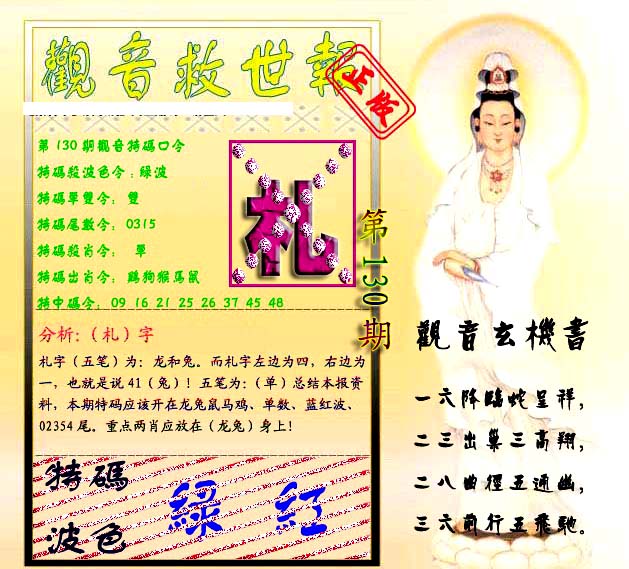 觀音救世報
正版
第130期觀音特碼口令
特碼殺波色令：綠波
特碼單雙令： 雙
特碼尾數令： 0315
特碼殺肖令： 單
特碼出肖令： 鷄狗猴馬鼠
特中碼令： 09 16 21 25 26 37 45 48
札
第130期
分析:（札）字
札字（五笔）为：龙和兔。而札字左边为四，右边为
一，也就是说 41（兔）！五笔为：（单）总结本报资
料，本期特码应该开在龙兔鼠马鸡、单数、蓝红波、
02354 尾。重点两肖应放在（龙兔）身上！
特碼
波色
綠 紅
觀音玄機書
一六降臨蛇呈祥，
二三出巢三高翔，
二八曲徑五通幽，
三六前行五飛馳。